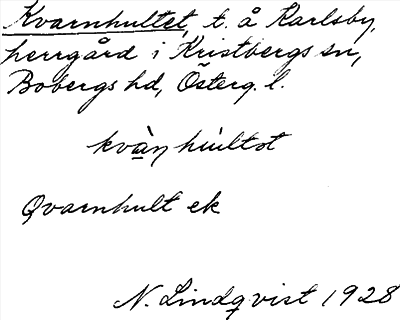 Kvarnhultet, t. å Karlsby,
herrgård i Kristbergs sn,
Bobergs hd, Österg. l.
kvàn̥ húltot
Qvarnhult ek
N. Lindqvist 1928